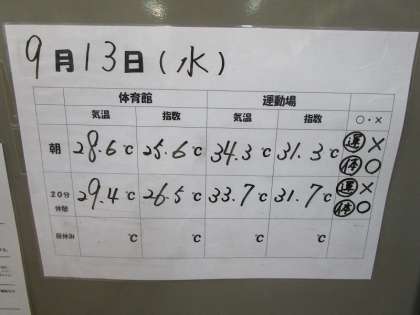 9月13日(水)
体育館 運動場
気温 指数 気温 指数 ○・×
朝 28.6℃ 25.6℃ 34.3℃ 31.3℃ 運 × 体 ○
20分休憩 29.4℃ 26.5℃ 33.7℃ 31.7℃ 運 × 体 ○
昼休み ℃ ℃ ℃ ℃